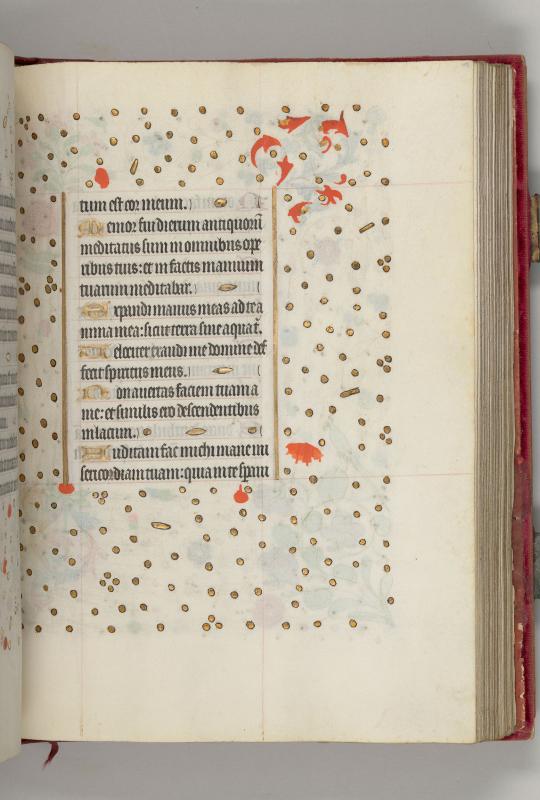 tum est cor meum.
Memor fui dierum antiquorũ
meditatus sum in omnibus ope
ribus tuis: et in factis manuum
tuarum meditabar.
Expandi manus meas ad te a
nima mea: sicut terra sine aqua t̃.
Velociter exaudi me domine def
fecit spiritus meus.
Non avertas faciem tuam a
me: et similis ero descendentibus
in lacum.
Auditam fac michi mane mi
sericordiam tuam: quia in te spaui